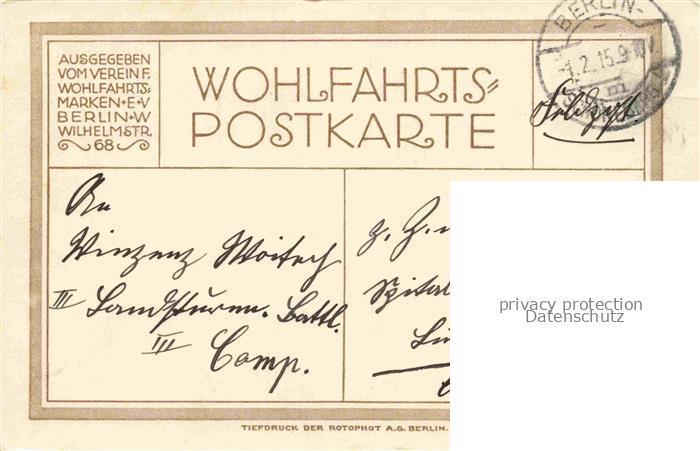 AUSGEGEBEN
VOM VEREIN F.
WOHLFAHRTS=
MARKEN+E+V
BERLIN+W
WILHELMSTR.
68
WOHLFAHRTS=
POSTKARTE
BERLIN-
2.15.9
Feldpost.
An
Winzenz Woitech
III Landsturm. Battl.
III Comp.
z. Z.
Spital
privacy protection
Datenschutz
TIEFDRUCK DER ROTOPHOT A.G. BERLIN.